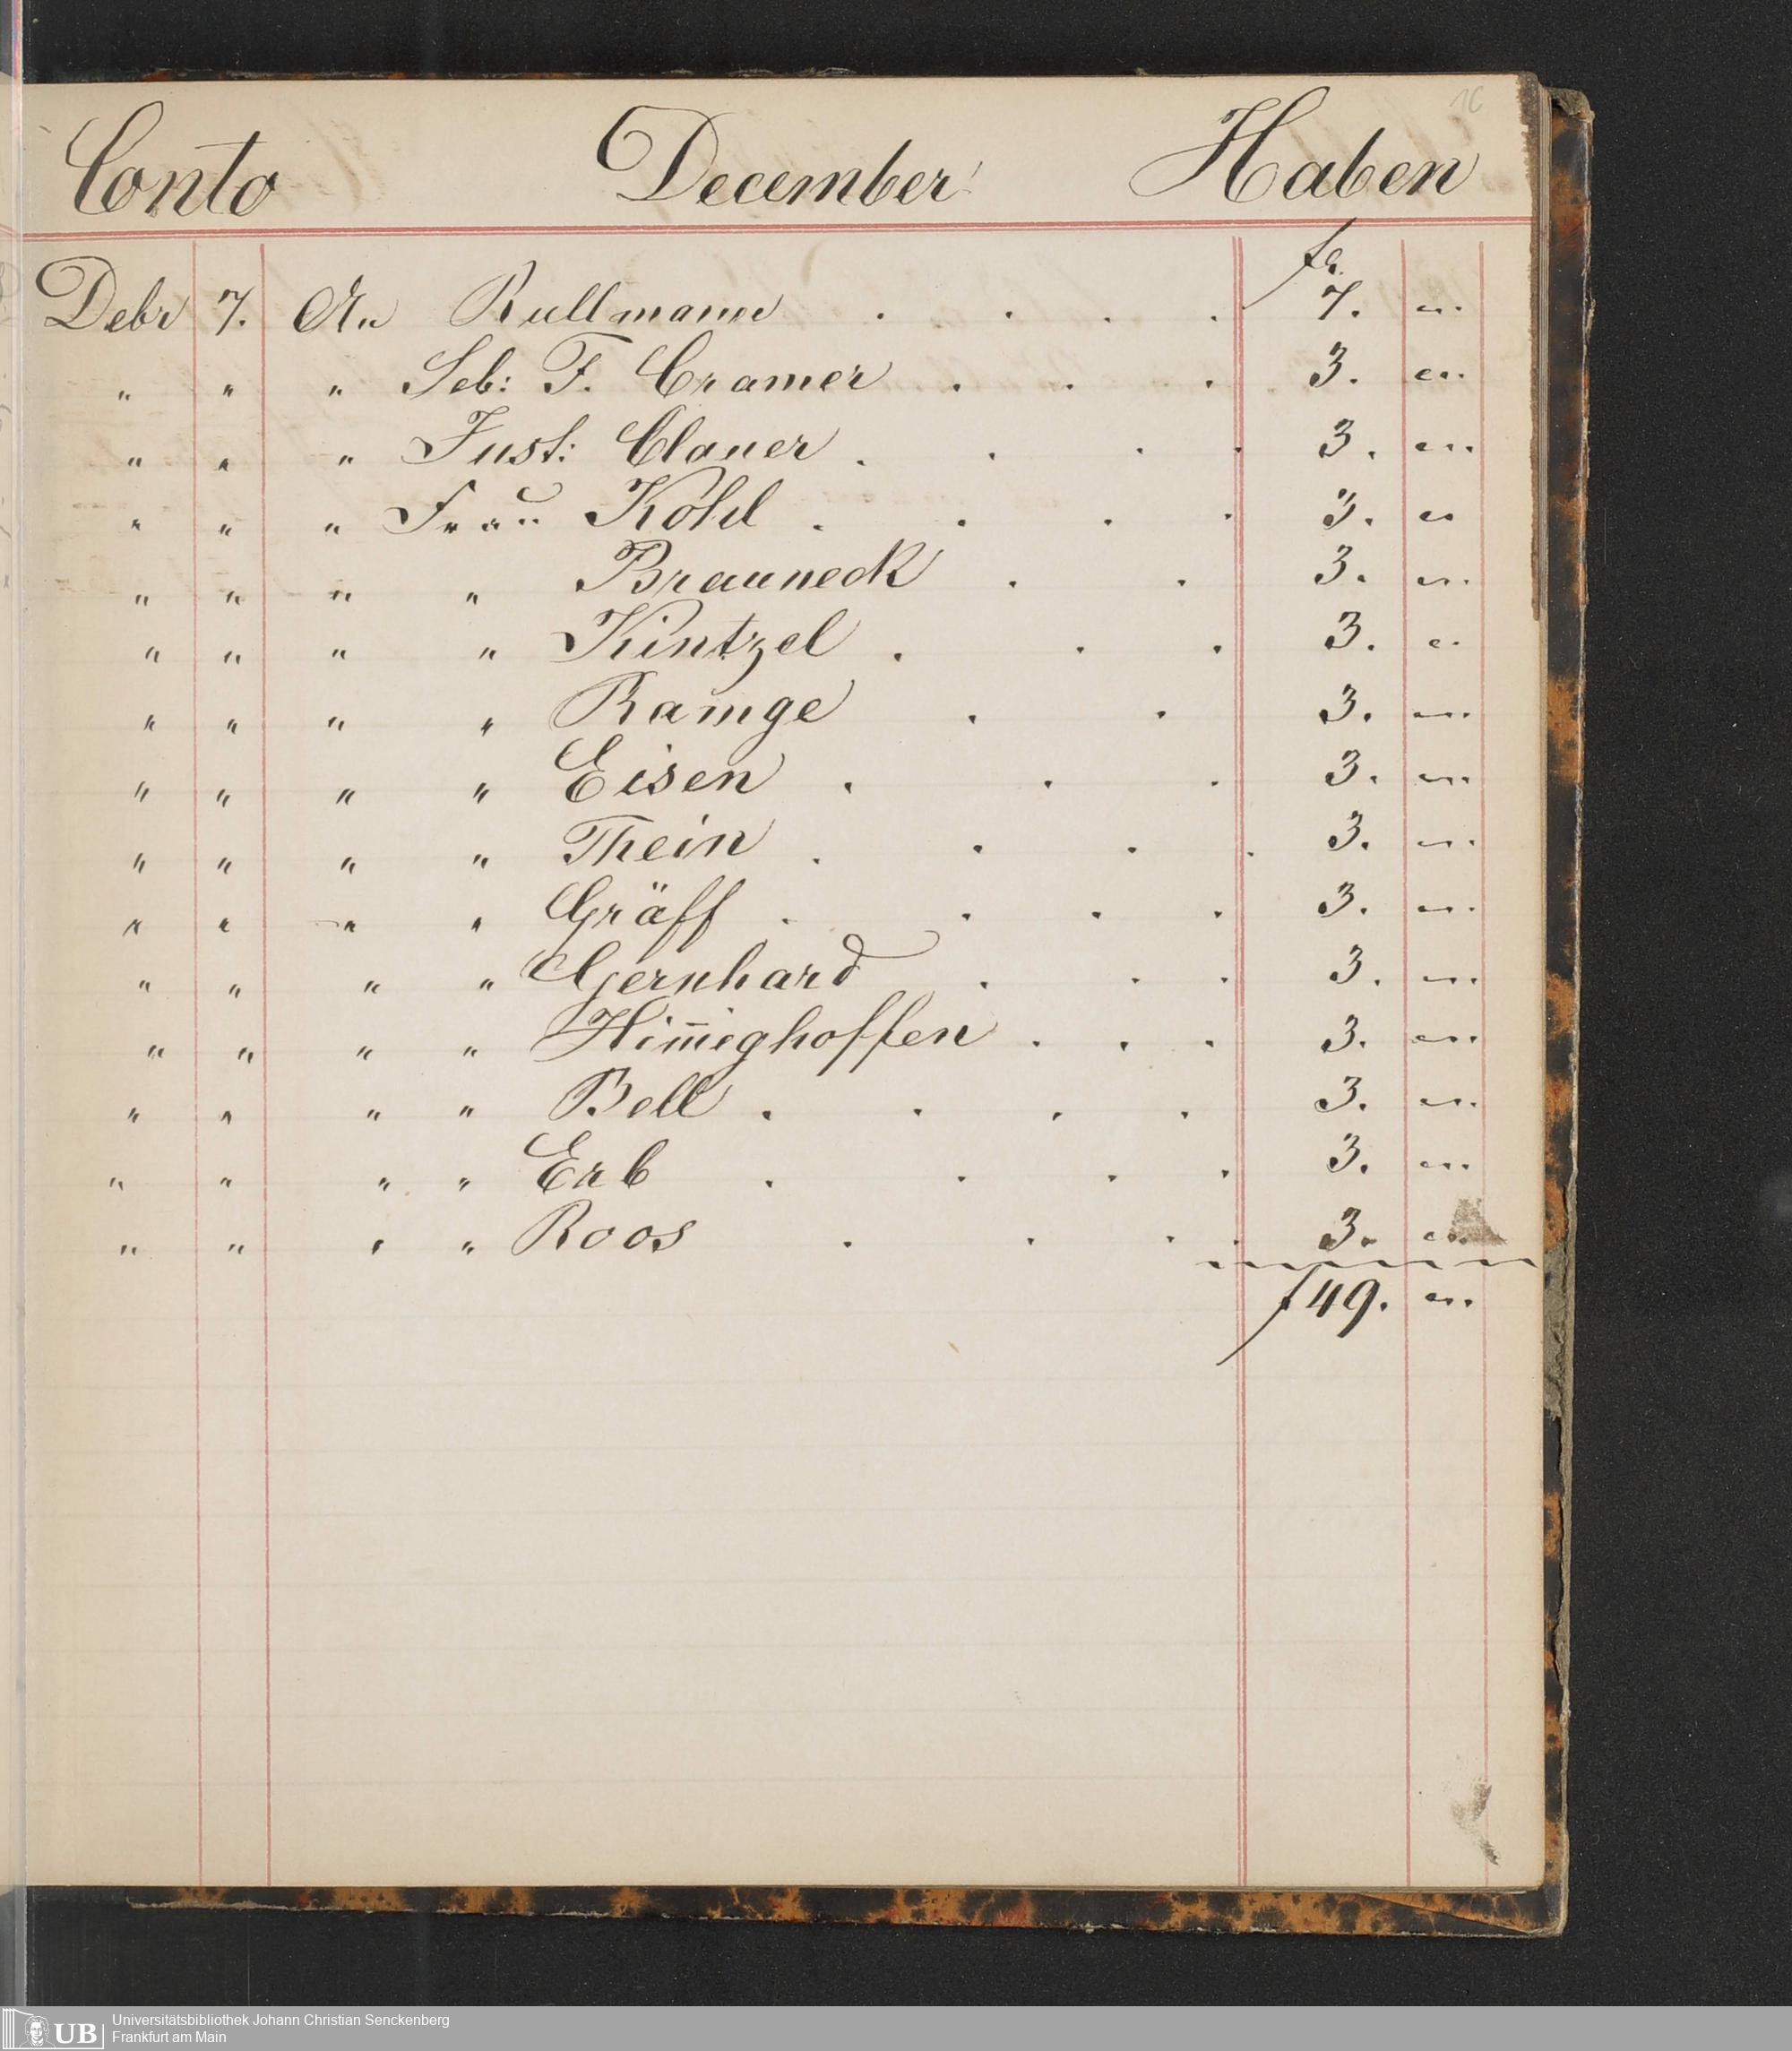 16
Conto December Haben
fl.
Debr 7. An Rullmann . . . . 7. „.
„ „ „ Seb: F. Cramer . . . 3. „.
„ „ „ Just: Clauer . . . . 3. „.
„ „ „ Frau Kohl . . . . 3. „
„ „ „ „ Brauneck . . 3. „.
„ „ „ „ Kintzel . . . 3. „.
„ „ „ „ Ramge . . 3. „.
„ „ „ „ Eisen . . . 3. „.
„ „ „ „ Thein . . . . 3. „.
„ „ „ „ Gräff . . . . 3. „.
„ „ „ „ Gernhard . . . 3. „.
„ „ „ „ Him̅eghoffen . . . 3. „.
„ „ „ „ Bell . . . . 3. „.
„ „ „ „ Erb . . . . 3. „.
„ „ „ „ Roos . . . . 3. „.
f 49. „.
UB Universitätsbibliothek Johann Christian Senckenberg
Frankfurt am Main